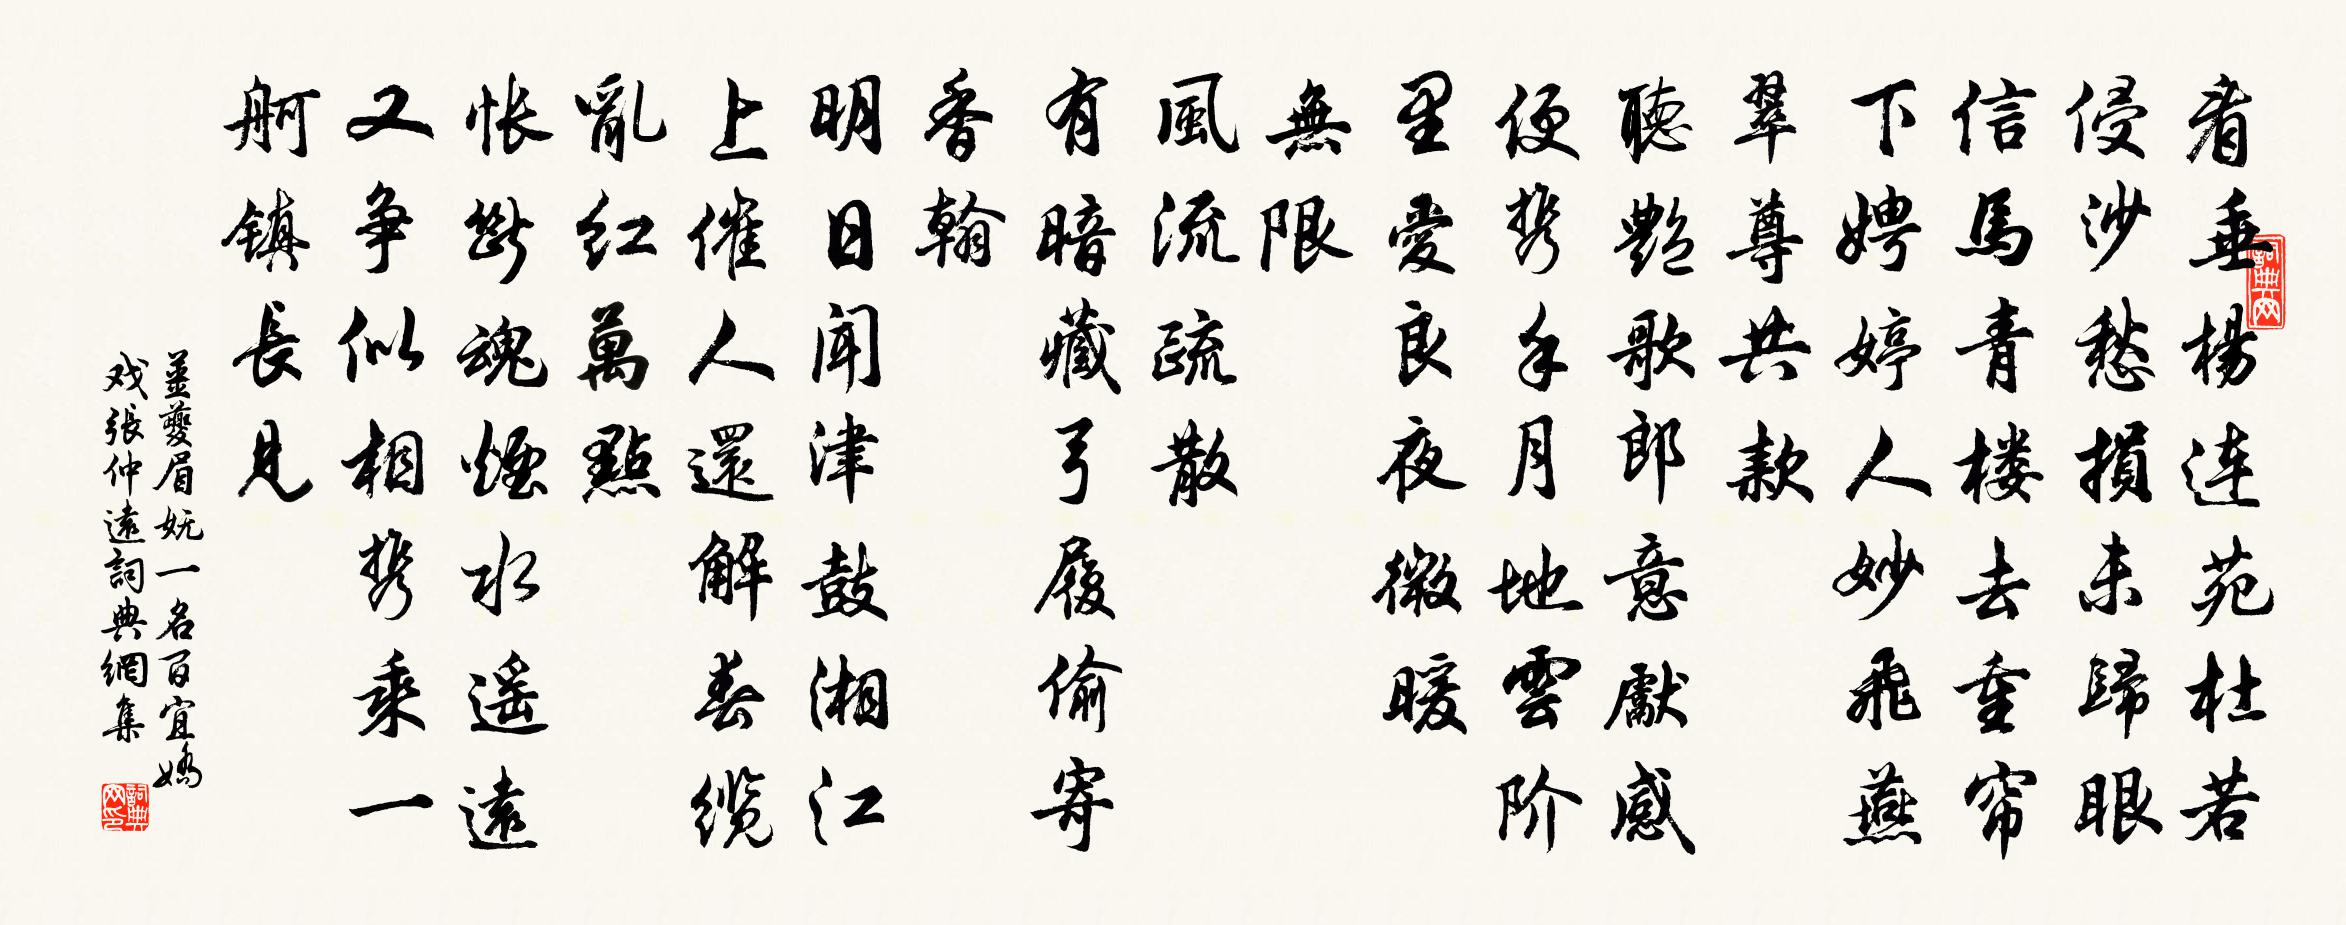 看垂楊连苑杜若
侵沙愁損未歸眼
信馬青楼去重帘
下娉婷人妙飛燕
翠尊共款
聽艷歌郎意先感
便携手月地雲阶
里愛良夜微暖
無限
風流疏散
有暗藏弓履偷寄
香翰
明日聞津鼓湘江
上催人還解春缆
亂红萬點
怅斷魂煙水遥遠
又争似相携乘一
舸镇長見
姜夔眉妩一名百宜嬌
戏張仲遠詞典網集